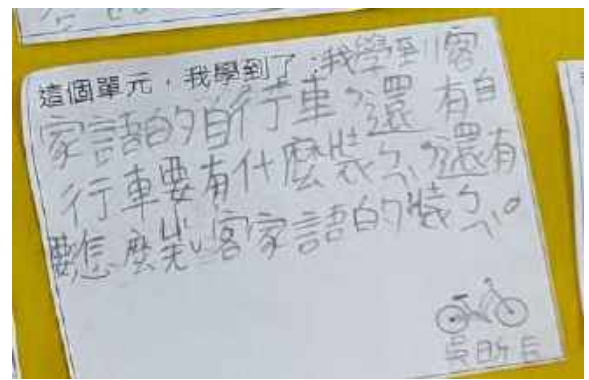 這個單元，我學到了:我學到客
家語的自行車，還有自
行車要有什麼裝ㄅㄟˋ，還有
要怎麼客家語的裝ㄅㄟˋ。